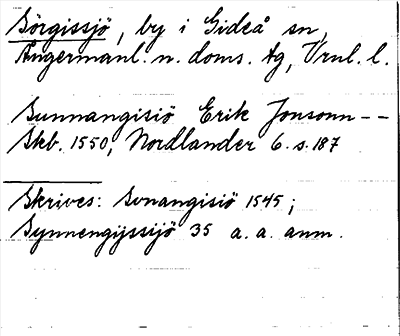 Sörgissjö, by i Gideå sn,
Ångermanl. n. doms. tg, Vrnl. l.
Sunnangisiö Erik Jonsonn --
Skb. 1550, Nordlander 6. s. 187
Skrives: Sonangisiö 1545;
Synnengijssijö 35 a. a. anm.